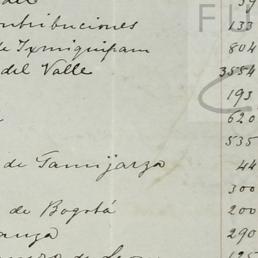 59
ontribuciones 133
de Ixmiquipam 804
del Valle 3554
193
620
535
de Tamijarza 44
300
de Bogotá 200
anza 290
125
FU